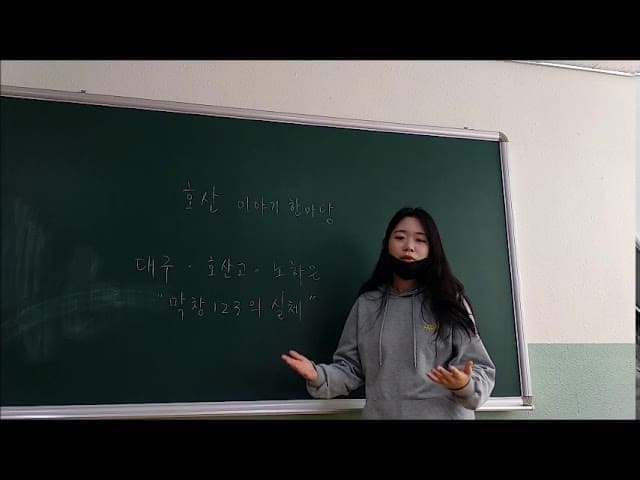 호산 이야기 한마당
대구 - 호산고 - 노하은
"막창 123의 실체"